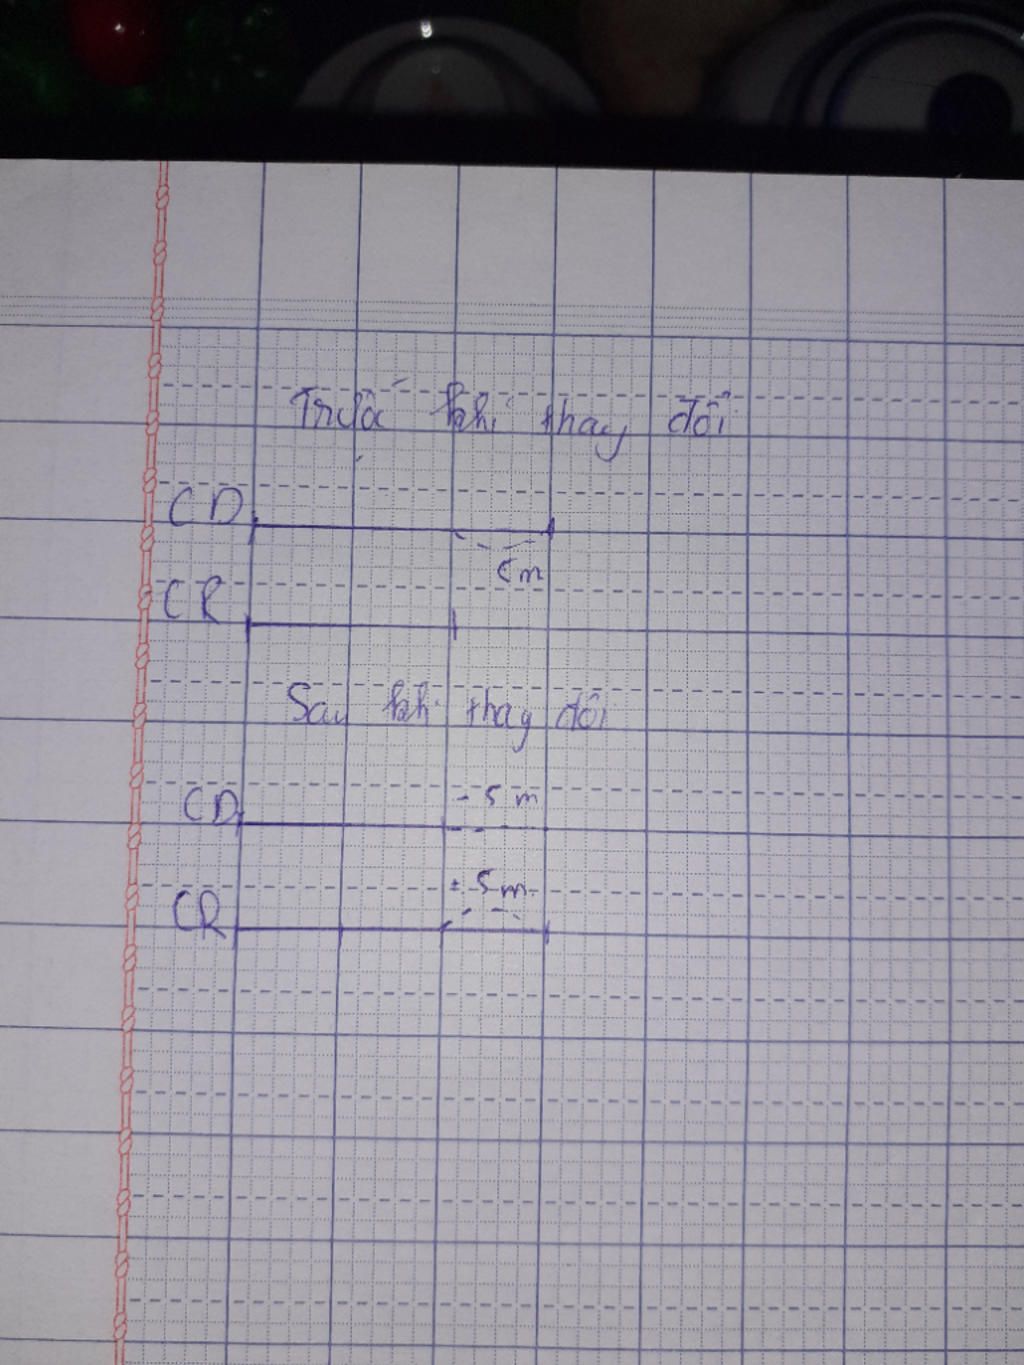 Trước khi thay đổi
CD
5m
CR
Sau khi thay đổi
CD
- 5 m
+ 5 m
CR